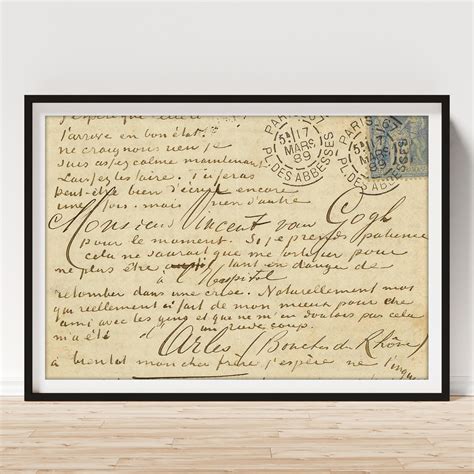 j'espère que
j'arrive en bon état.
ne craignons rien je
suis assez calme maintenant
Laissez les faire. Tu feras
peut-être bien d'écrire encore
une fois. mais rien d'autre
PARIS
17
MARS
89
PL. DES ABBESSES
PARIS 67
17
MARS
89
PL. DES ABBESSES
Monsieur Vincent van Gogh
pour le moment. Si je prends patience
cela ne saurait que me fortifier pour
ne plus être tant en danger de
à l'Hospital
retomber dans une crise. Naturellement moi
qui réellement ai fait de mon mieux pour être
ami avec les gens et qui ne m'en doutais pas cela
m'a été un rude coup.
Arles (Bouches du Rhône)
à bientôt mon cher frère j'espère ne t'inquiè